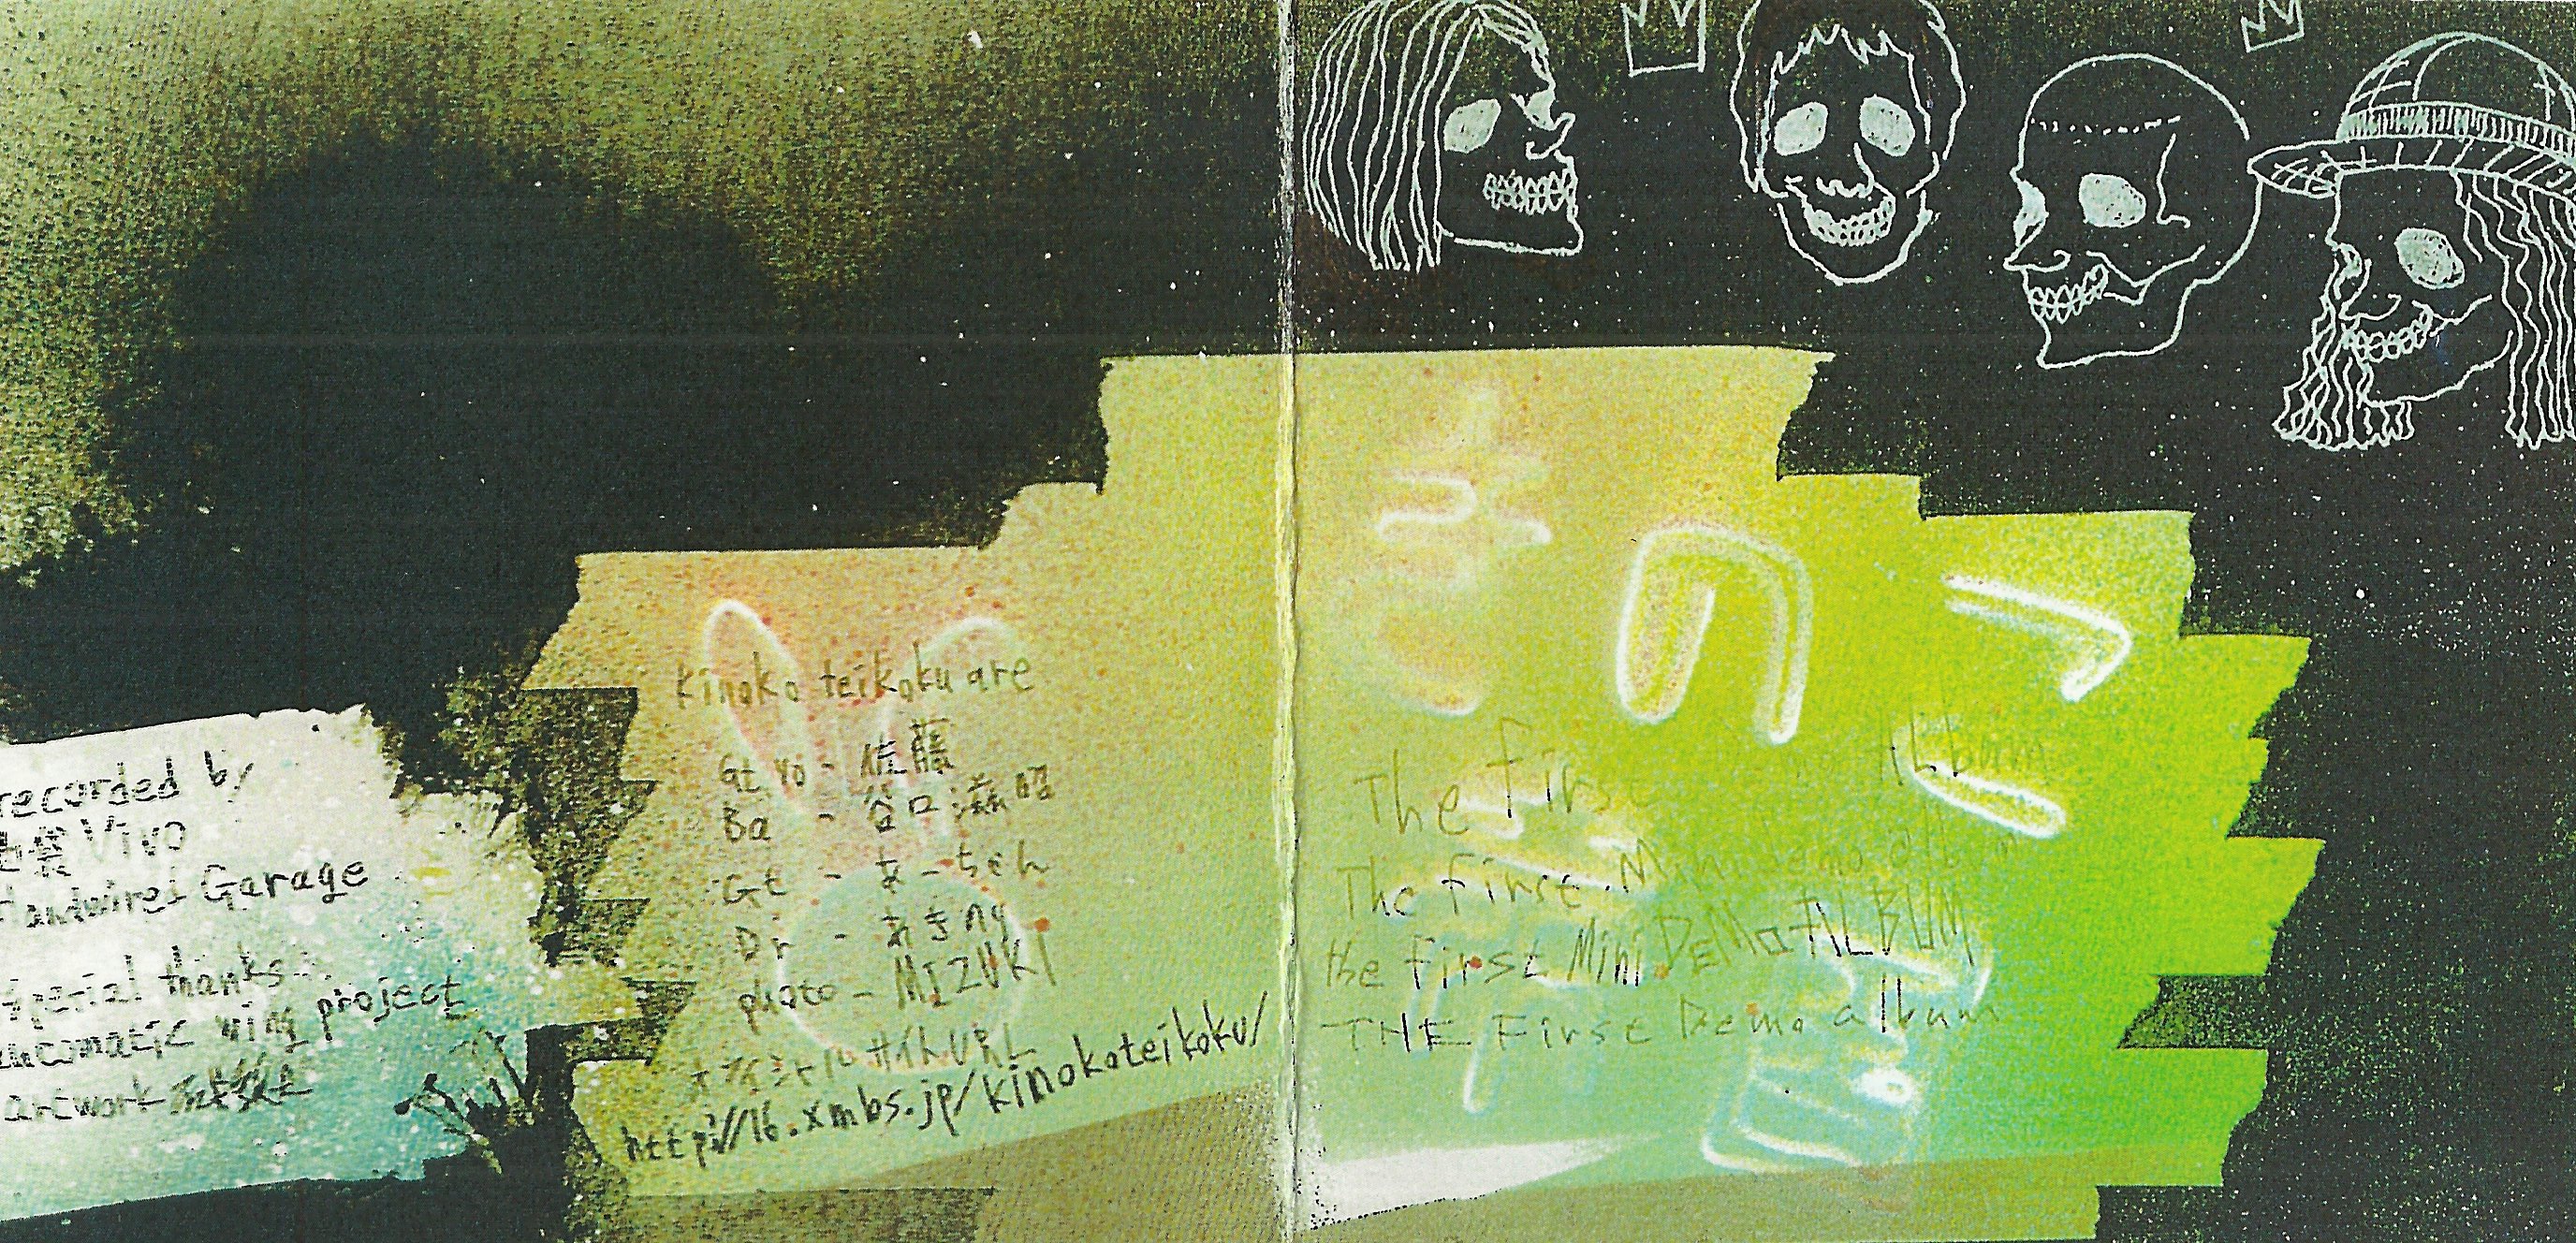 recorded by
Vivo
Handwired Garage
special thanks
automatic wing project
artwork
kinoko teikoku are
Gt vo - 佐藤
Ba - 谷口滋昭
Gt - あーちゃん
Dr -
photo - MIZUKI
オフィシャルサイトURL
http://16.xmbs.jp/kinokoteikoku/
きのこ
帝国
The First Album
The first Mini Demo album
the first Mini DEMo ALBUM
THE First Demo album